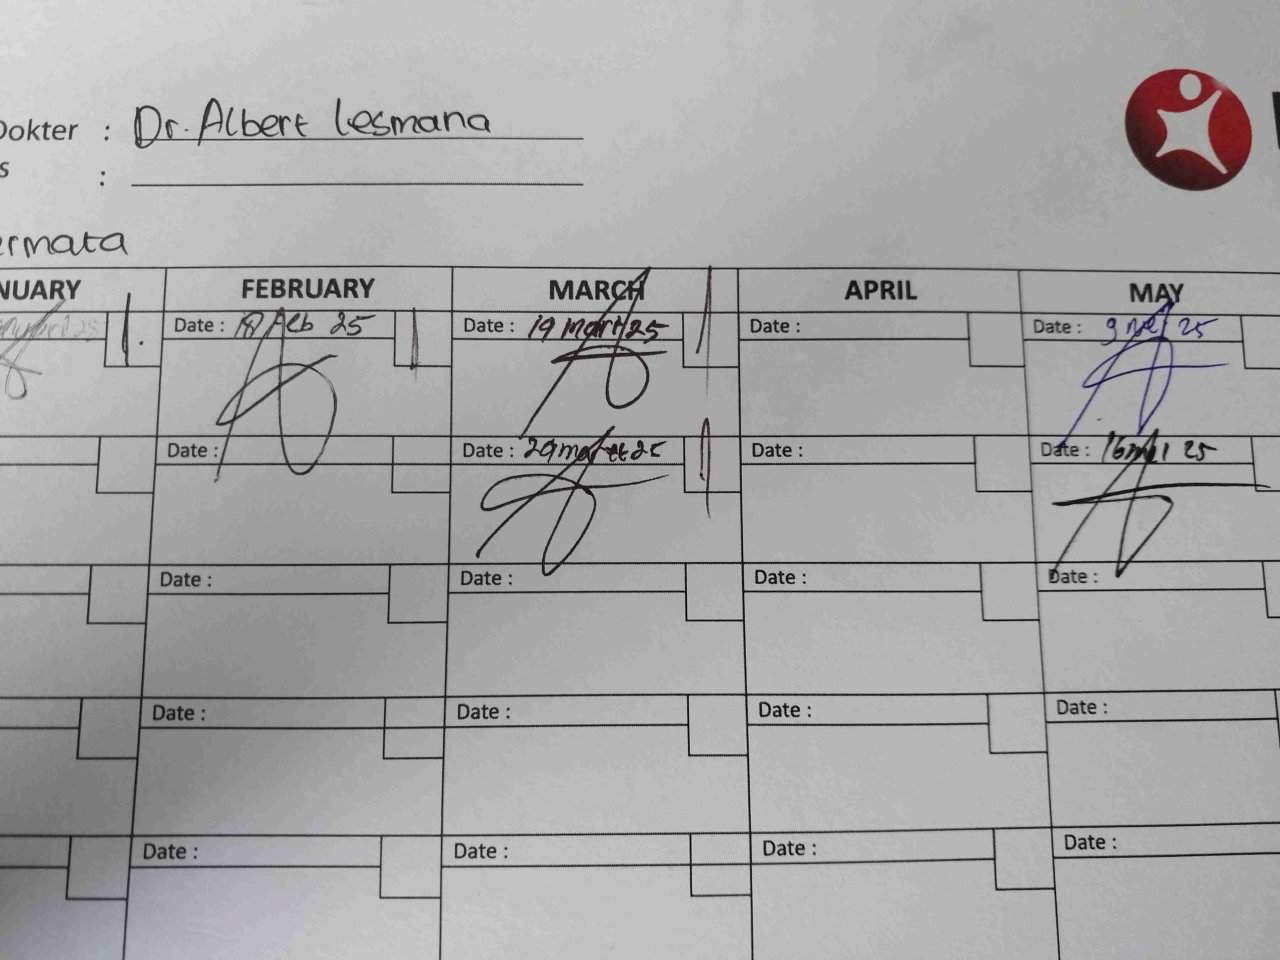 Dokter : Dr. Albert Lesmana
s :
ermata
NUARY FEBRUARY MARCH APRIL MAY
Date : 18 Feb 25 Date : 19 Mart 25 Date : Date : 9 Mei 25
Date : Date : 29 maret 25 Date : Date : 16 mei 25
Date : Date : Date : Date :
Date : Date : Date : Date :
Date : Date : Date : Date :